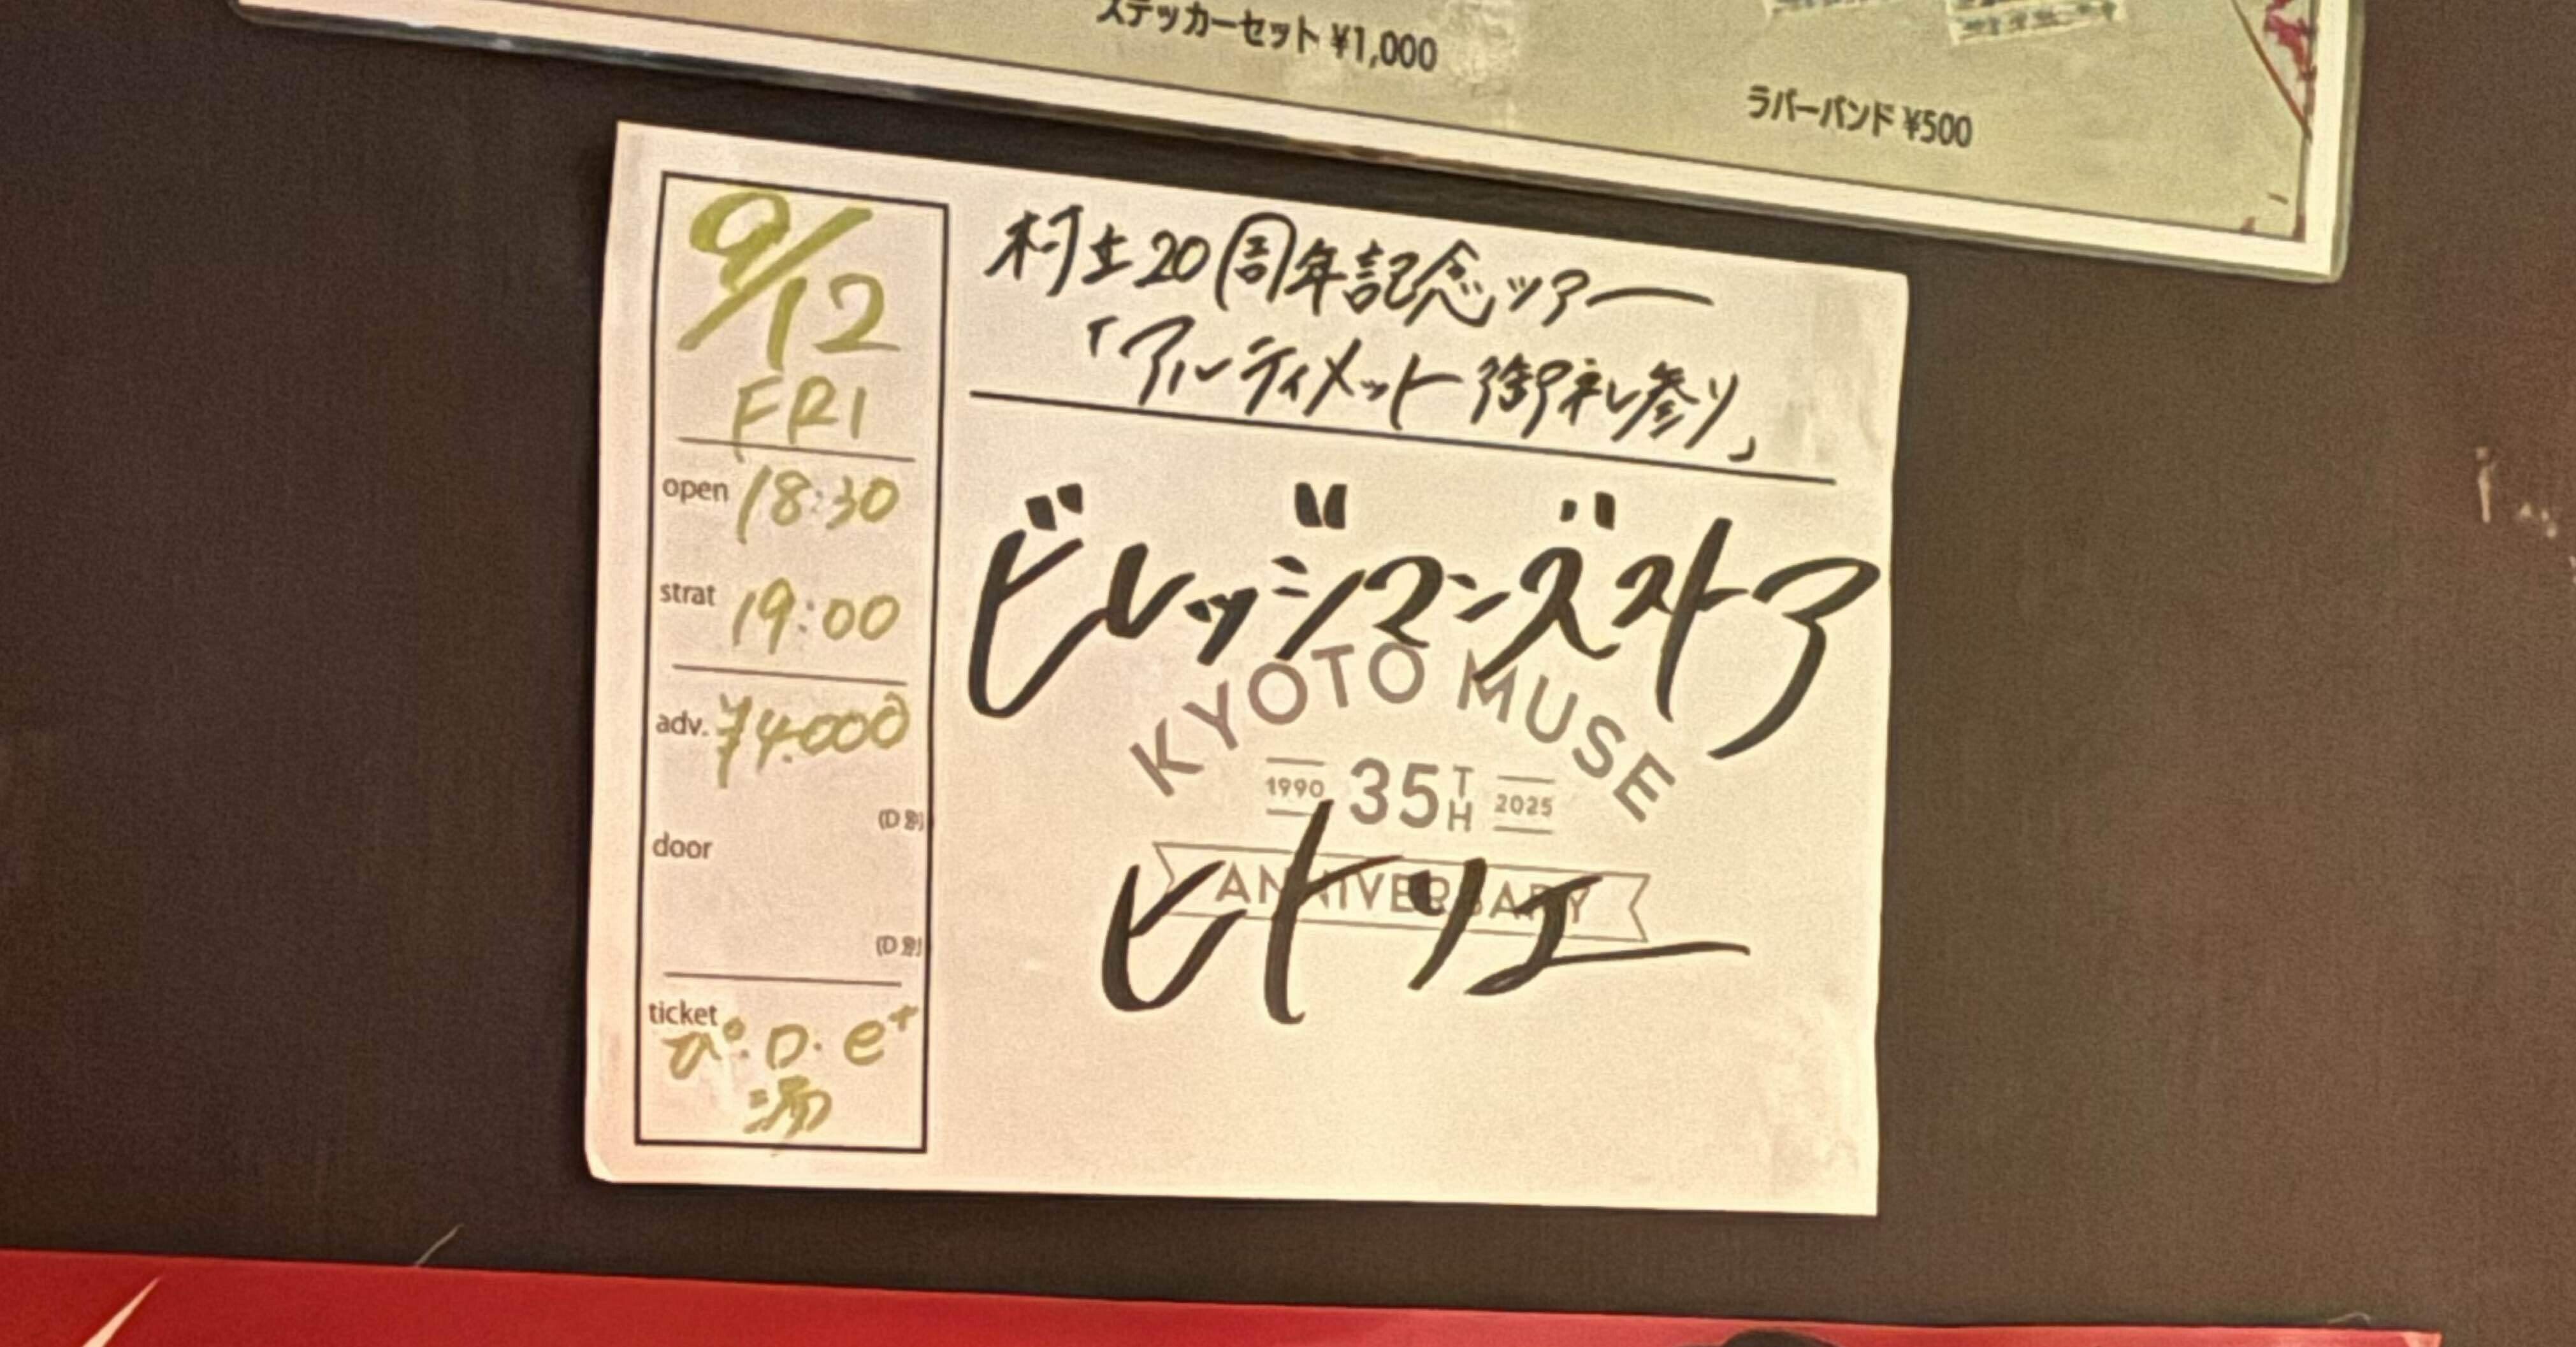 ステッカーセット ¥1,000
ラバーバンド ¥500
9/12
FRI
open 18:30
strat 19:00
adv. ¥4.000
(D別)
door
(D別)
ticket
ぴ.D.e+
湯
村立20周年記念ツアー
「アルティメット御礼参り」
ビレッジマンズストア
KYOTO MUSE
1990 35TH 2025
ANNIVERSARY
ヒトリエ